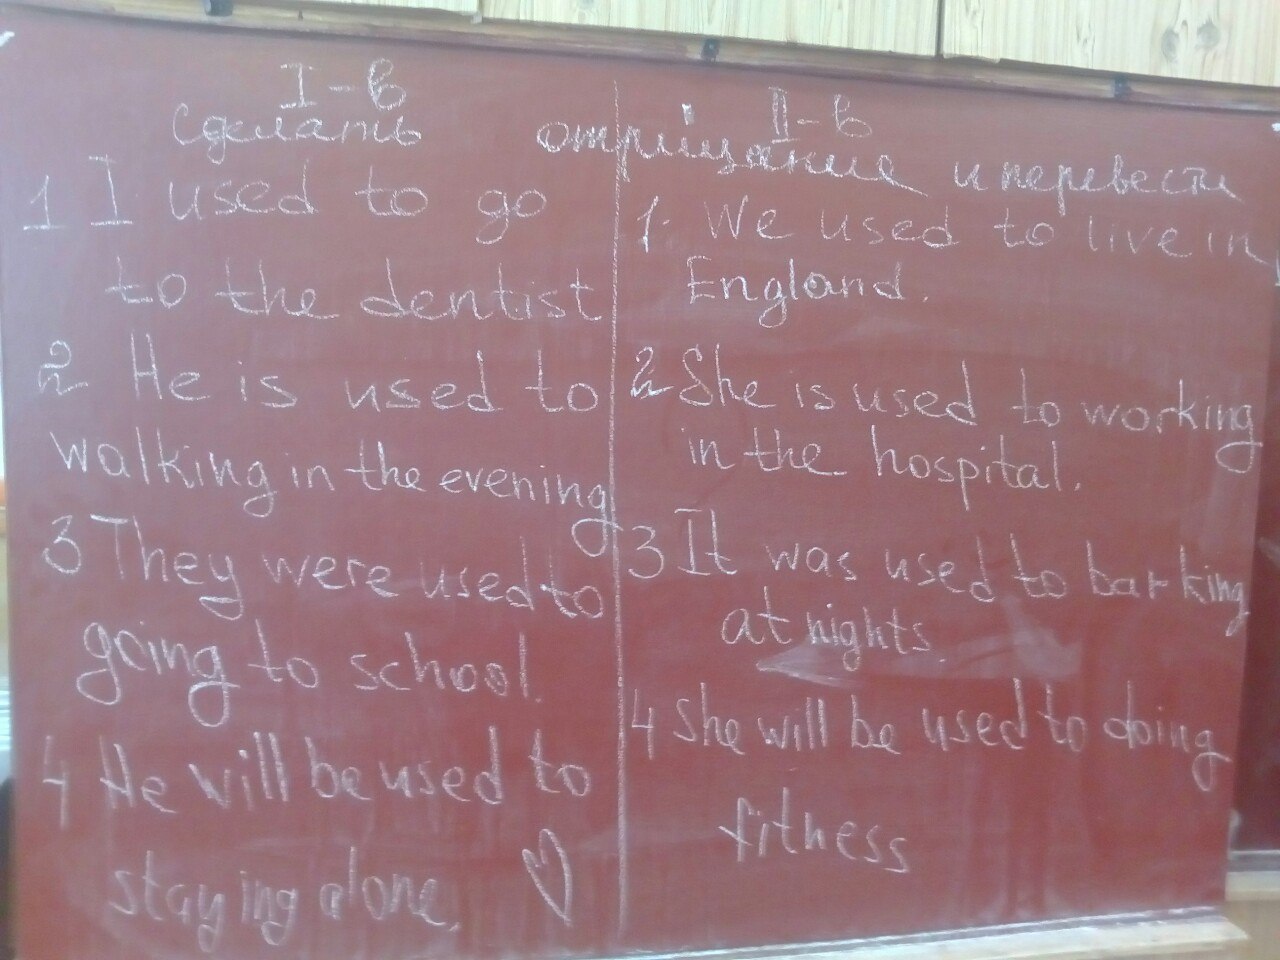 I-в
II-в
сделать отрицание и перевести
1 I used to go
to the dentist
2 He is used to
walking in the evening
3 They were used to
going to school.
4 He will be used to
staying alone.
1. We used to live in
England.
2 She is used to working
in the hospital.
3 It was used to barking
at nights.
4 She will be used to doing
fitness